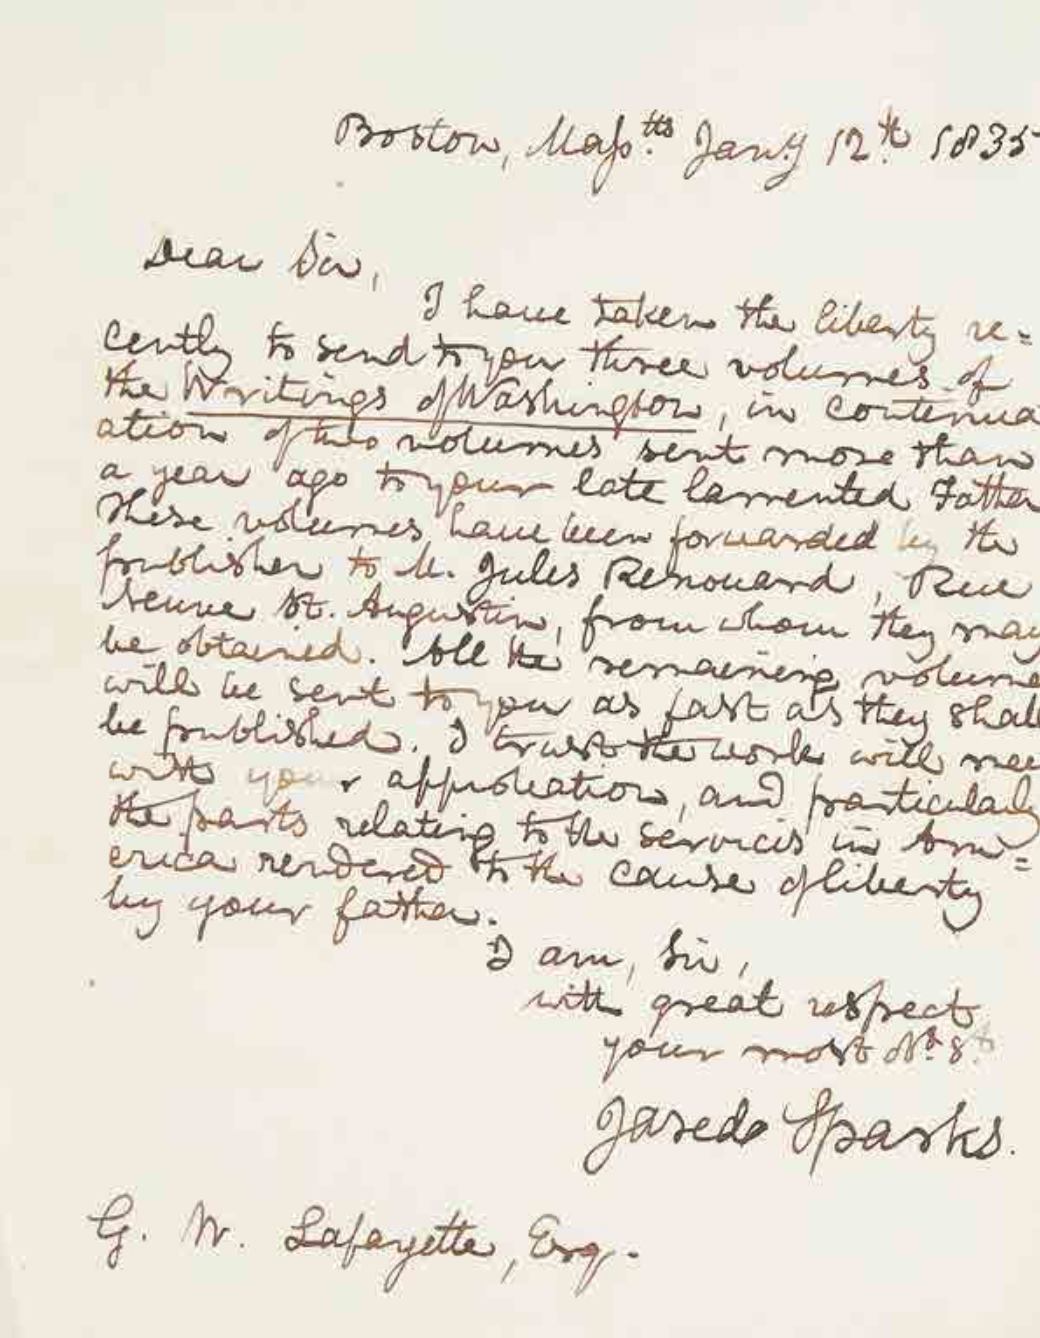 Boston, Mass.tts Jan.y 12.th 1835
Dear Sir,
I have taken the liberty re=
cently to send to you three volumes of
the Writings of Washington, in continua
ation of two volumes sent more than
a year ago to your late lamented Father
These volumes have been forwarded by the
publisher to M. Jules Renouard, Rue
neuve St. Augustin, from whom they may
be obtained. All the remaining volume
will be sent to you as fast as they shall
be published. I trust the work will mee
with your approbation, and particularly
the parts relating to the services in Am=
erica rendered to the cause of liberty
by your father.
I am, Sir,
with great respect
your most Ob.t St.
Jared Sparks.
G. W. Lafayette, Esq.